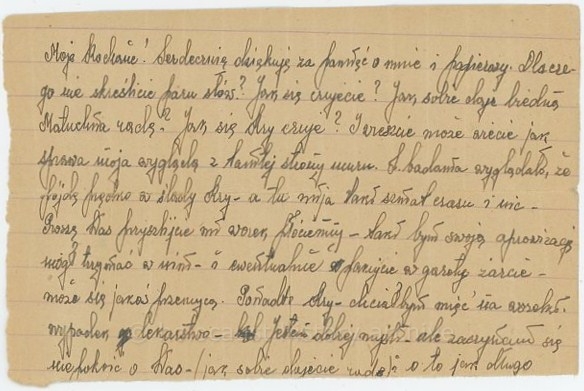 Moje Kochane! Serdecznie dziękuję za pamięć o mnie i papierosy. Dlacze-
go nie skreślicie paru słów? Jak się czujecie? Jak sobie daje biedna
Matuchna radę? Jak się Ary czuje? I wreszcie może wiecie jak
sprawa moja wygląda z tamtej strony muru. Z badania wyglądało, że
pójdę prędko w ślady Ary - a tu mija taki szmat czasu i nic -
Proszę Was przyszlijcie mi worek płócienny - taki bym swoją aprowizację
mógł trzymać w nim - i ewentualnie fajnycie w gazety żarcie -
może się jakoś przemyca. Ponadto Ary - chciałbym mieć na wszelki
wypadek lekarstwo - Jestem dobrej myśli - ale zaczynam się
niepokoić o Was - (jak sobie dajecie radę) o to jak długo